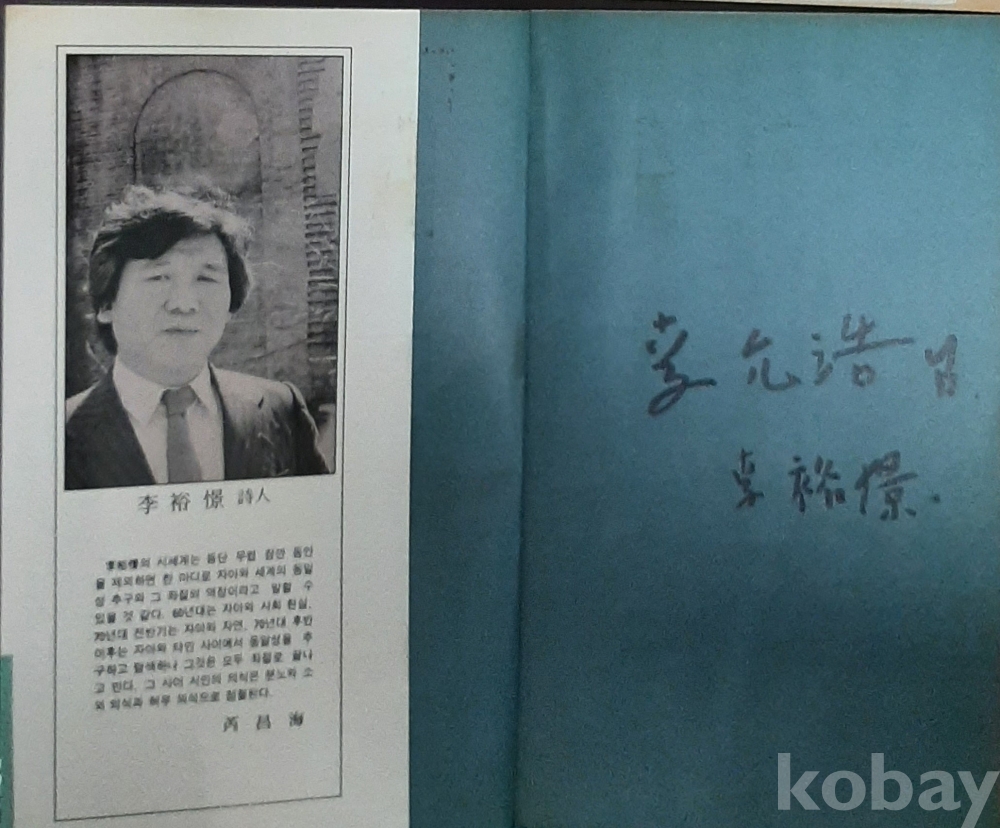 李裕憬 詩人
李裕憬의 시세계는 등단 무렵 잠깐 동안
을 제외하면 한 마디로 자아와 세계의 동일
성 추구와 그 좌절의 역정이라고 말할 수
있을 것 같다. 60년대는 자아와 사회 현실,
70년대 전반기는 자아와 자연, 70년대 후반
이후는 자아와 타인 사이에서 동일성을 추
구하고 탐색하나 그것은 모두 좌절로 끝나
고 만다. 그 사이 시인의 의식은 분노와 소
외 의식과 허무 의식으로 점철된다.
芮昌海
李允浩
李裕憬.
kobay